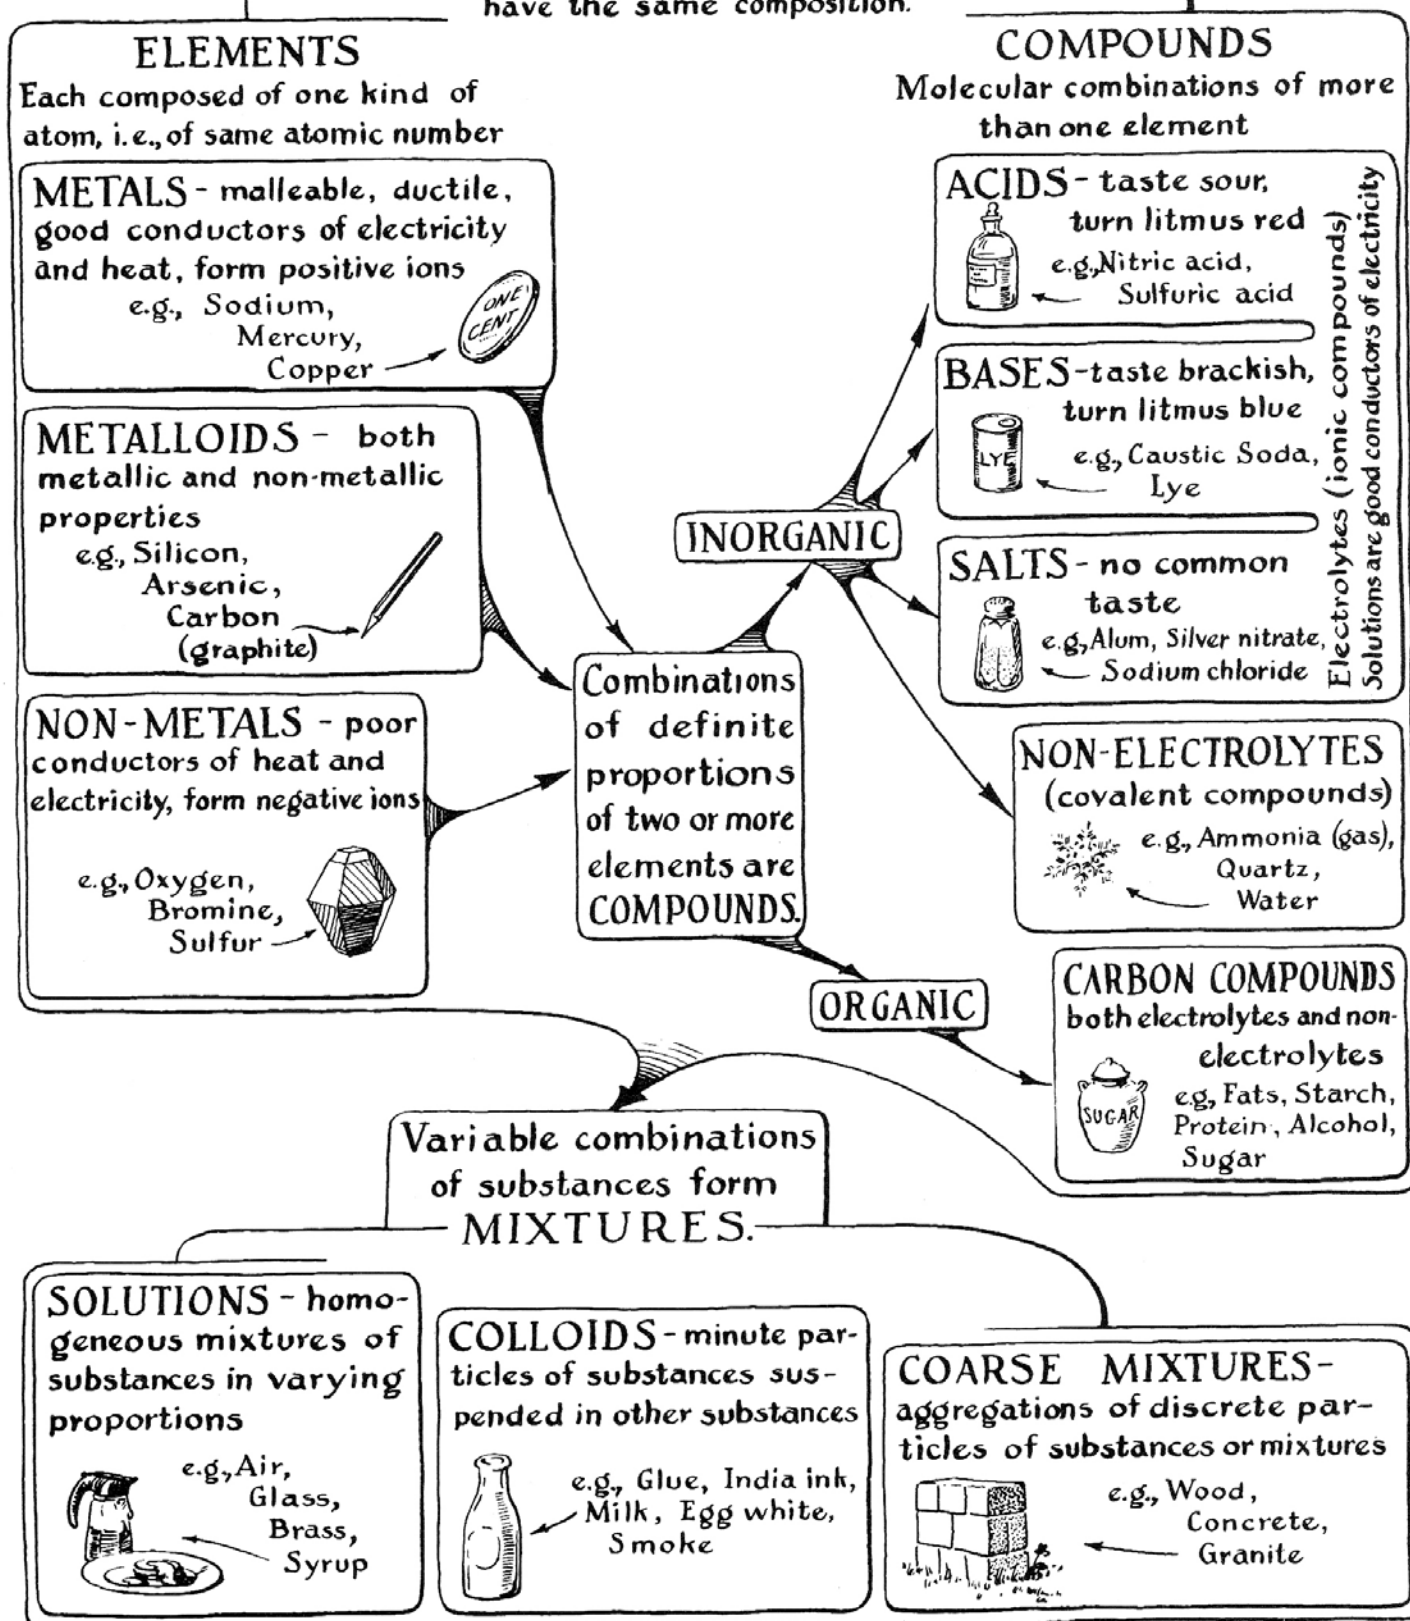 have the same composition.
ELEMENTS
Each composed of one kind of
atom, i.e., of same atomic number
METALS - malleable, ductile,
good conductors of electricity
and heat, form positive ions
e.g., Sodium,
Mercury,
Copper
ONE
CENT
METALLOIDS - both
metallic and non-metallic
properties
e.g., Silicon,
Arsenic,
Carbon
(graphite)
NON-METALS - poor
conductors of heat and
electricity, form negative ions
e.g., Oxygen,
Bromine,
Sulfur
Combinations
of definite
proportions
of two or more
elements are
COMPOUNDS.
INORGANIC
ORGANIC
COMPOUNDS
Molecular combinations of more
than one element
ACIDS - taste sour,
turn litmus red
e.g., Nitric acid,
Sulfuric acid
BASES - taste brackish,
turn litmus blue
LYE
e.g., Caustic Soda,
Lye
SALTS - no common
taste
e.g., Alum, Silver nitrate,
Sodium chloride
Electrolytes (ionic compounds)
Solutions are good conductors of electricity
NON-ELECTROLYTES
(covalent compounds)
e.g., Ammonia (gas),
Quartz,
Water
CARBON COMPOUNDS
both electrolytes and non-
electrolytes
SUGAR
e.g., Fats, Starch,
Protein, Alcohol,
Sugar
Variable combinations
of substances form
MIXTURES.
SOLUTIONS - homo-
geneous mixtures of
substances in varying
proportions
e.g., Air,
Glass,
Brass,
Syrup
COLLOIDS - minute par-
ticles of substances sus-
pended in other substances
e.g., Glue, India ink,
Milk, Egg white,
Smoke
COARSE MIXTURES-
aggregations of discrete par-
ticles of substances or mixtures
e.g., Wood,
Concrete,
Granite